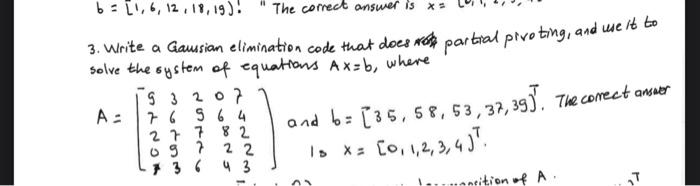 b = [1, 6, 12, 18, 19]! " The correct answer is x =
3. Write a Gaussian elimination code that does partial pivoting, and use it to
solve the system of equations Ax=b, where
A = [9 3 2 0 7
7 6 9 6 4
2 7 7 8 2
0 9 7 2 2
7 3 6 4 3]
and b = [35, 58, 53, 37, 39]ᵀ. The correct answer
Is x = [0, 1, 2, 3, 4]ᵀ.
of A.